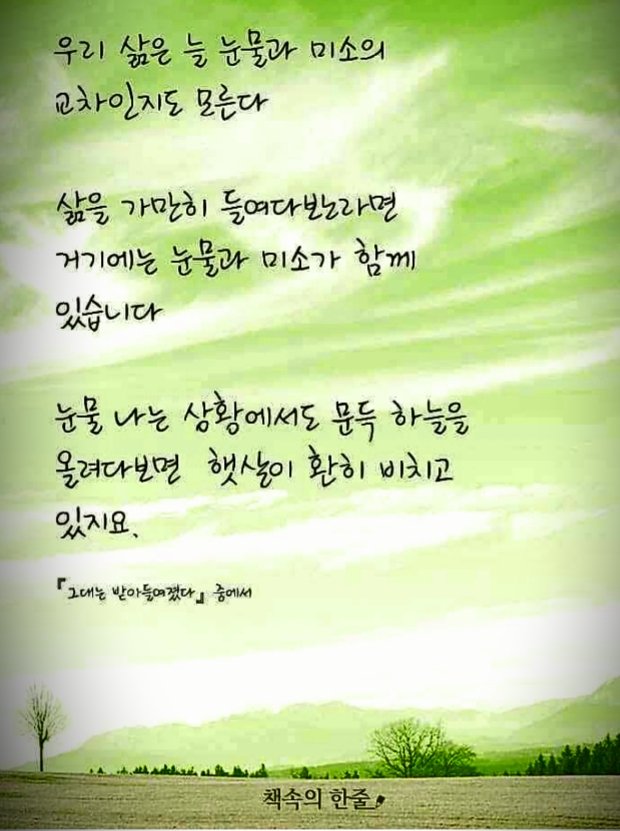 우리 삶은 늘 눈물과 미소의
교차인지도 모른다
삶을 가만히 들여다보노라면
거기에는 눈물과 미소가 함께
있습니다
눈물 나는 상황에서도 문득 하늘을
올려다보면 햇살이 환히 비치고
있지요.
『그대는 받아들여졌다』 중에서
책속의 한줄